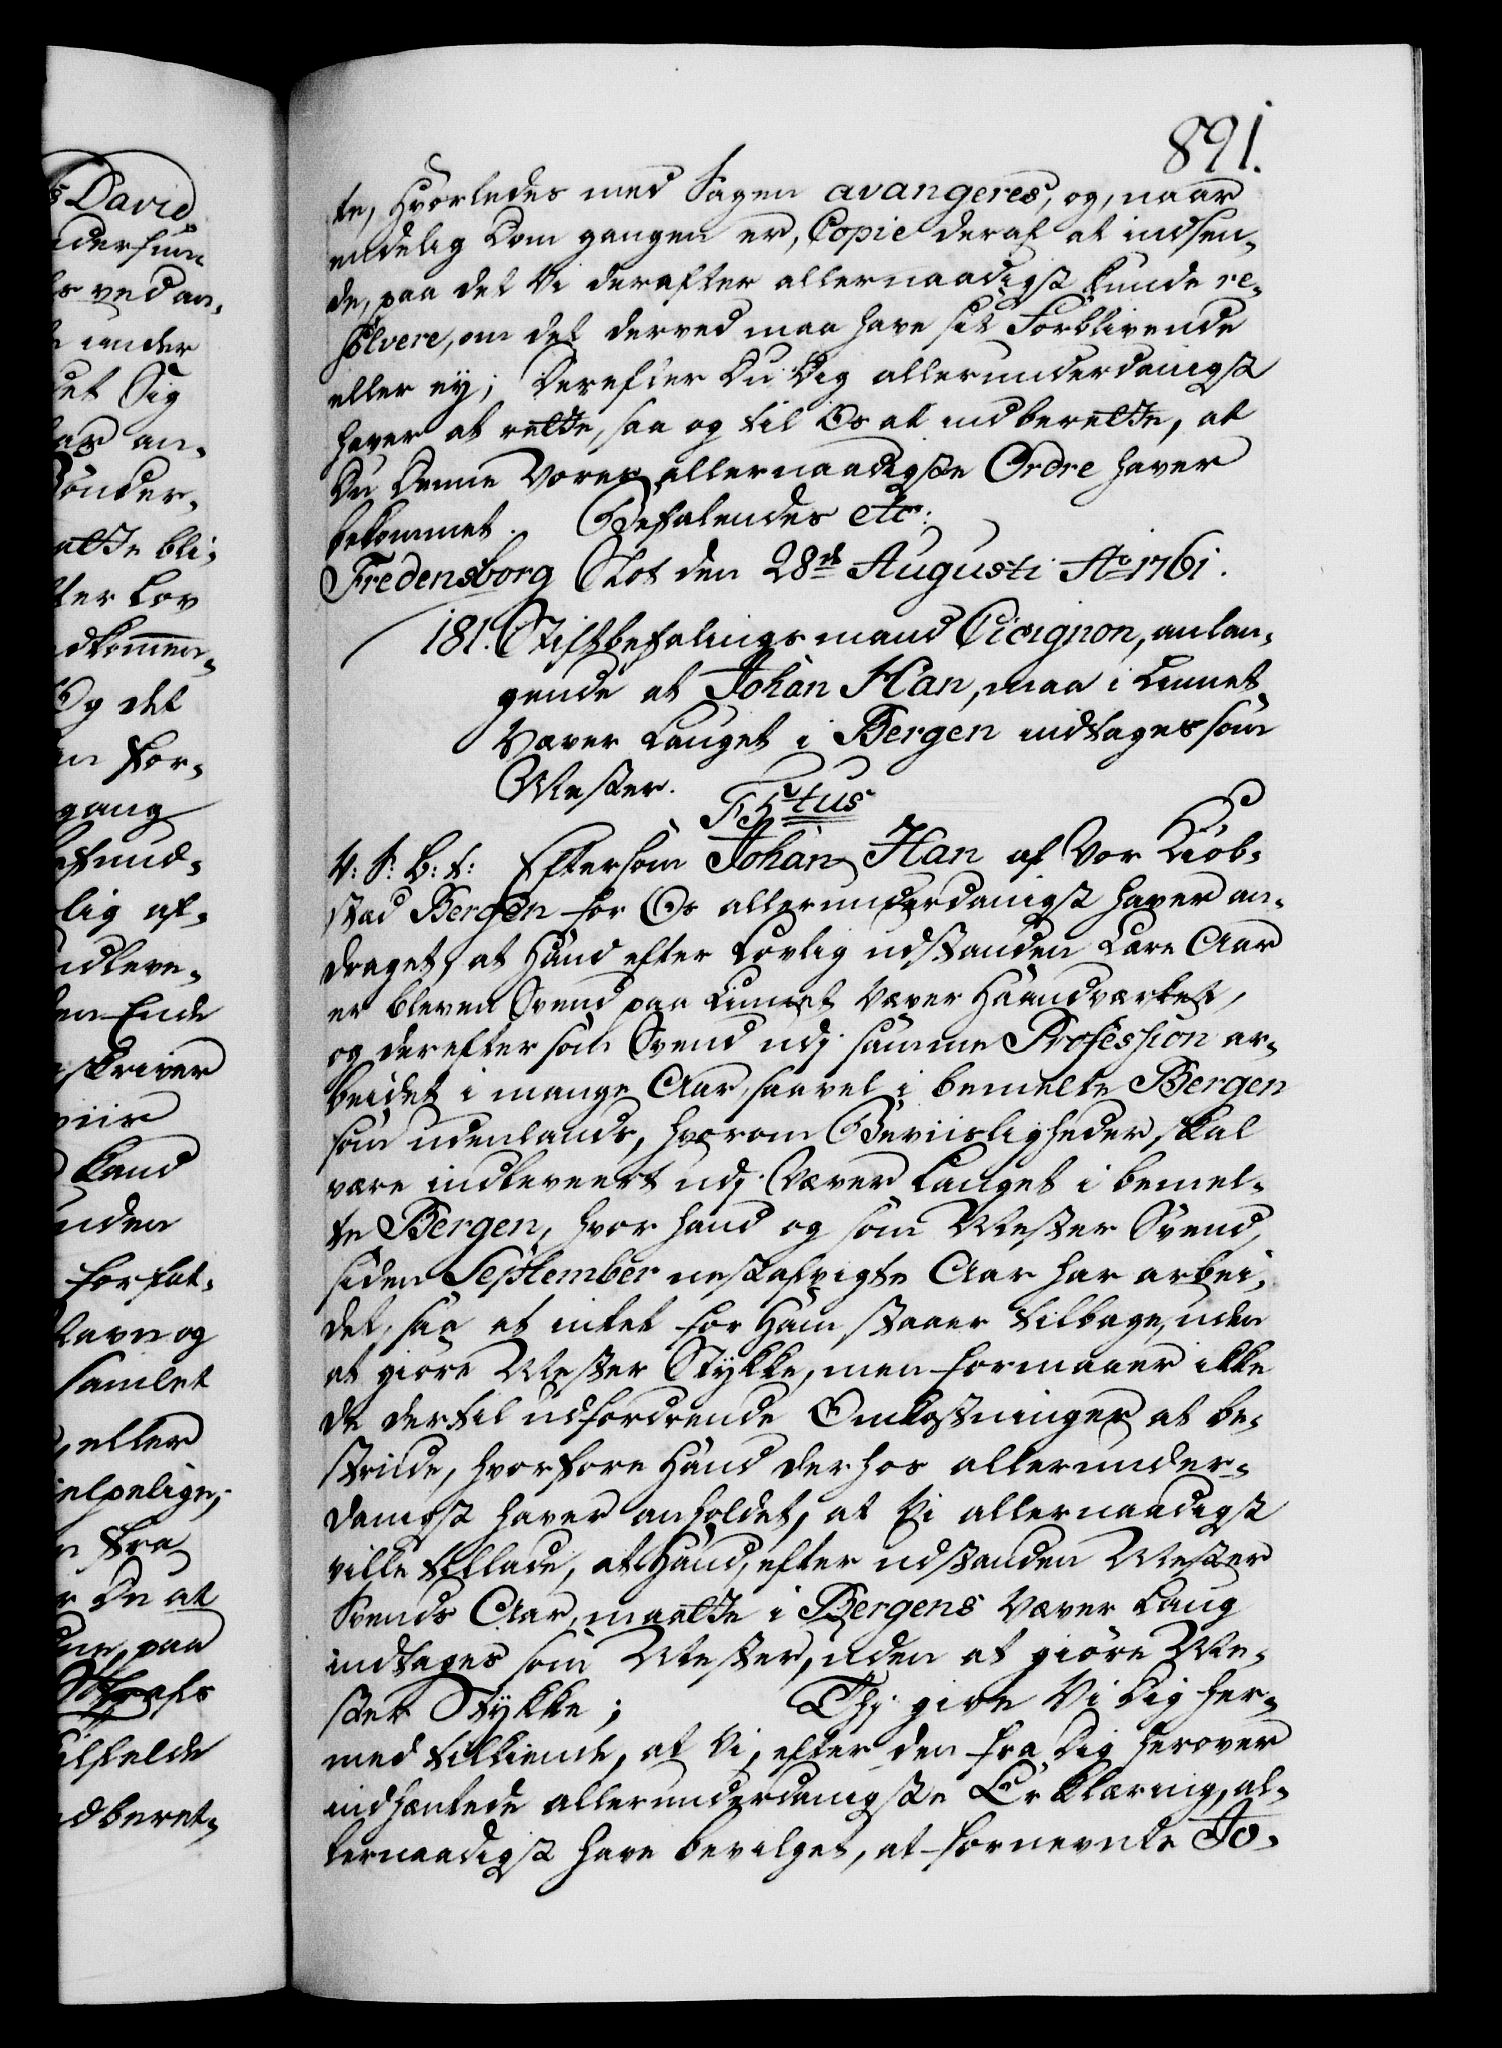 891.
te, hvorledes med Sagen avangeres, og, naar
endelig Dom gangen er, Copie deraf at indsen-
de, paa det Vi derefter allernaadigst kunde re-
solvere, om det derved maa have sit Forblivende
eller ey; Derefter Du Dig allerunderdanigst
haver at rette, saa og til Os at indberette, at
Du denne Vores allernaadigste Ordre haver
bekommet. Befalendes etc:
Fredensborg Slot den 28de Augusti Ao 1761.
181. Stiftbefalingsmand Cicignon, anlan-
gende at Johan Han, maa i Linnet
Væver Lauget i Bergen indtages som
Mester.
F5tus
V: S: B: T: Eftersom Johan Han af Vor Kiøb-
stad Bergen for Os allerunderdanigst haver an-
draget, at Hand efter lovlig udstanden Lære Aar
er bleven Svend paa Linnet Væver Haandværket,
og derefter som Svend udj samme Profession ar-
beidet i mange Aar, saavel i bemelte Bergen
som udenlands, hvorom Beviisligheder skal
være indleveert udj Væver Lauget i bemel-
te Bergen, hvor hand og som Mester Svend,
siden September nestafvigte Aar har arbei-
det, saa at intet for Ham staaer tilbage, uden
at giøre Mester Stykke, men formaaer ikke
de dertil udfordrende Omkostninger at be-
stride, hvorfore Hand derhos allerunder-
danigst haver anholdet, at Vi allernaadigst
ville tillade, at Hand, efter udstanden Mester
Svends Aar, maatte i Bergens Væver Laug
indtages som Mester, uden at giøre Me-
ster Stykke; Thj give Vi Dig her-
med tilkiende, at Vi, efter den fra Dig herover
indhentede allerunderdanigste Erklæring, al-
lernaadigst have bevilget, at fornevnte Jo-